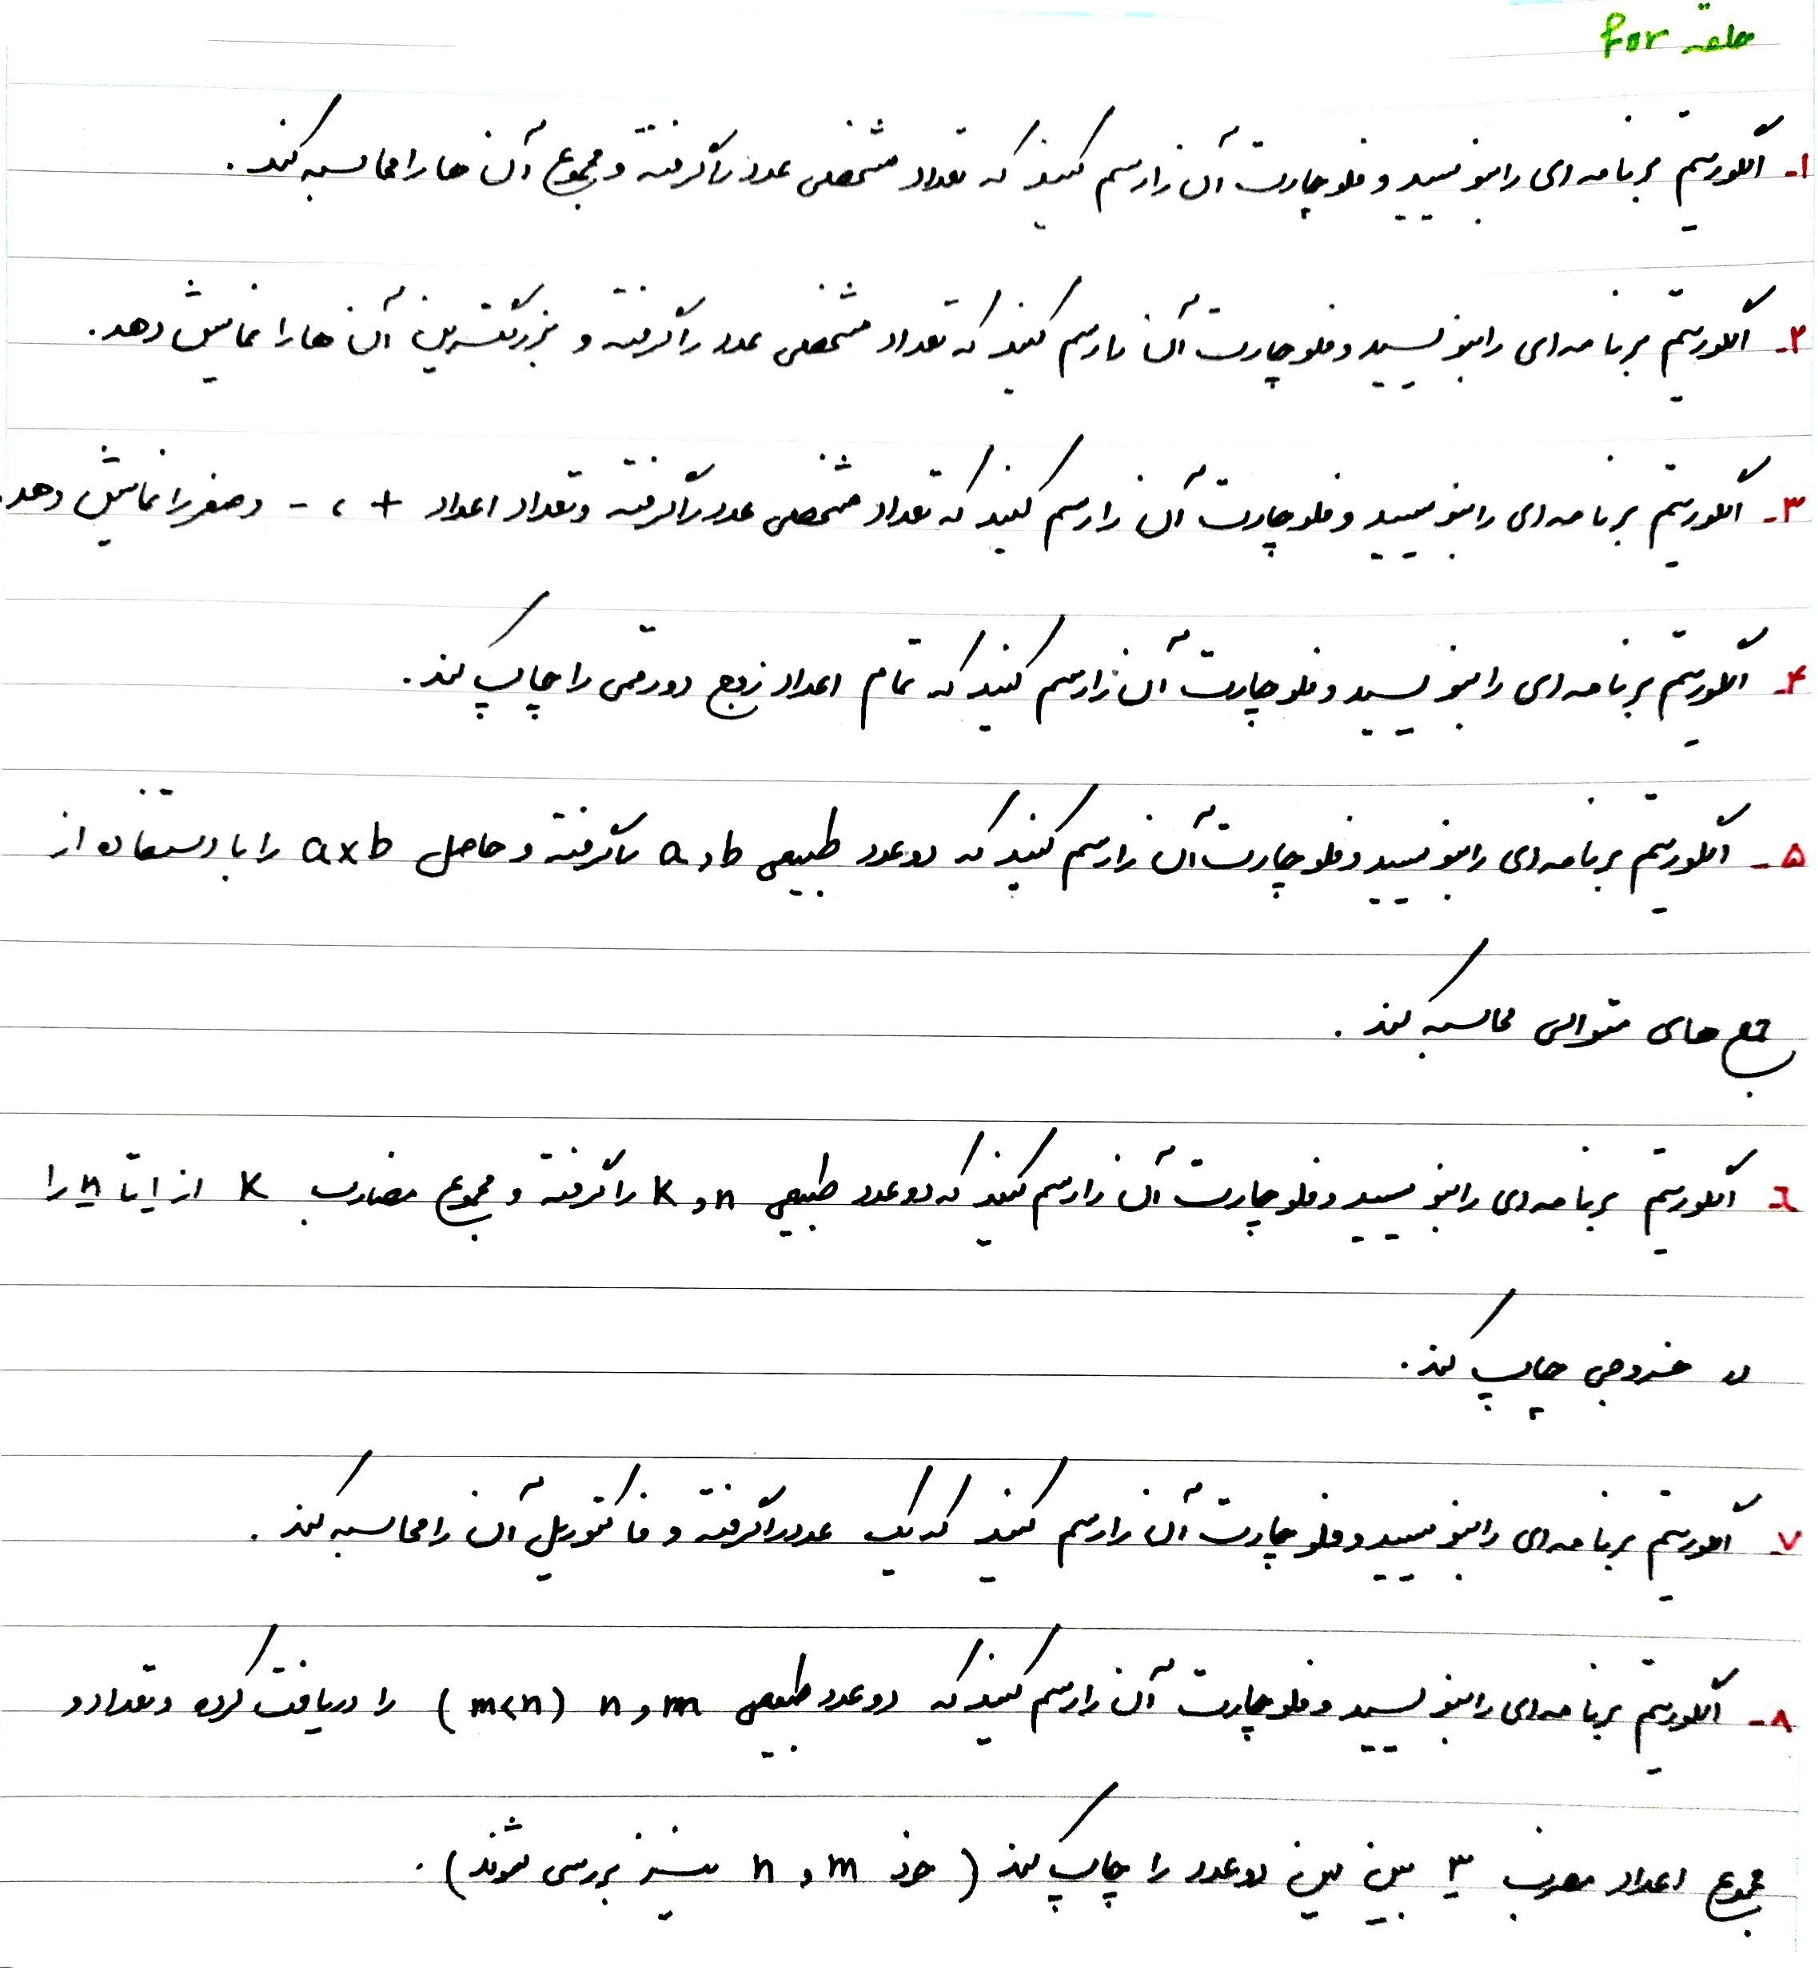 حلقه for
۱- الگوریتم برنامه ای را بنویسید و فلوچارت آن را رسم کنید که تعداد مشخصی عدد را گرفته و مجموع آن ها را محاسبه کند.
۲- الگوریتم برنامه ای را بنویسید و فلوچارت آن را رسم کنید که تعداد مشخصی عدد را گرفته و بزرگترین آن ها را نمایش دهد.
۳- الگوریتم برنامه ای را بنویسید و فلوچارت آن را رسم کنید که تعداد مشخصی عدد را گرفته و تعداد اعداد + ، - و صفر را نمایش دهد.
۴- الگوریتم برنامه ای را بنویسید و فلوچارت آن را رسم کنید که تمام اعداد زوج دورقمی را چاپ کند.
۵- الگوریتم برنامه ای را بنویسید و فلوچارت آن را رسم کنید که دو عدد طبیعی a و b را گرفته و حاصل a×b را با استفاده از
جمع های متوالی محاسبه کند.
۶- الگوریتم برنامه ای را بنویسید و فلوچارت آن را رسم کنید که دو عدد طبیعی n و k را گرفته و مجموع مضارب k از ۱ تا n را
در خروجی چاپ کند.
۷- الگوریتم برنامه ای را بنویسید و فلوچارت آن را رسم کنید که یک عدد را گرفته و فاکتوریل آن را محاسبه کند.
۸- الگوریتم برنامه ای را بنویسید و فلوچارت آن را رسم کنید که دو عدد طبیعی m و n (m<n) را دریافت کرده و تعداد و
مجموع اعداد مضرب ۳ بین این دو عدد را چاپ کند (خود m و n نیز بررسی شوند).